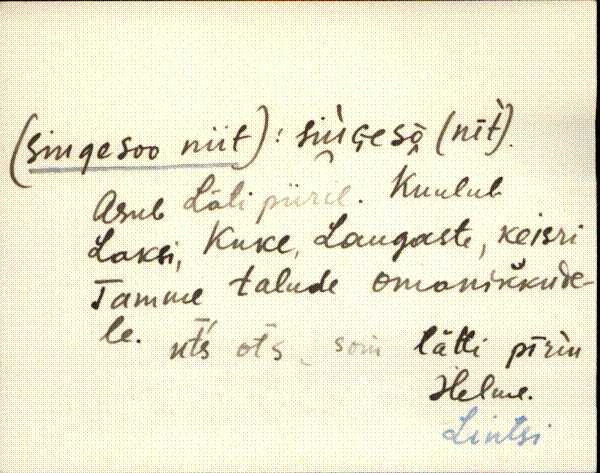 (singesoo niit): siǹgesō̭ (nīt̀).
Asub Läti piiril. Kuulub
Laksi, Kuke, Laugaste, keisri
Tamme talude omanikkude-
le. ūt́s ots soin lätti pīrin
Helme.
Lintsi